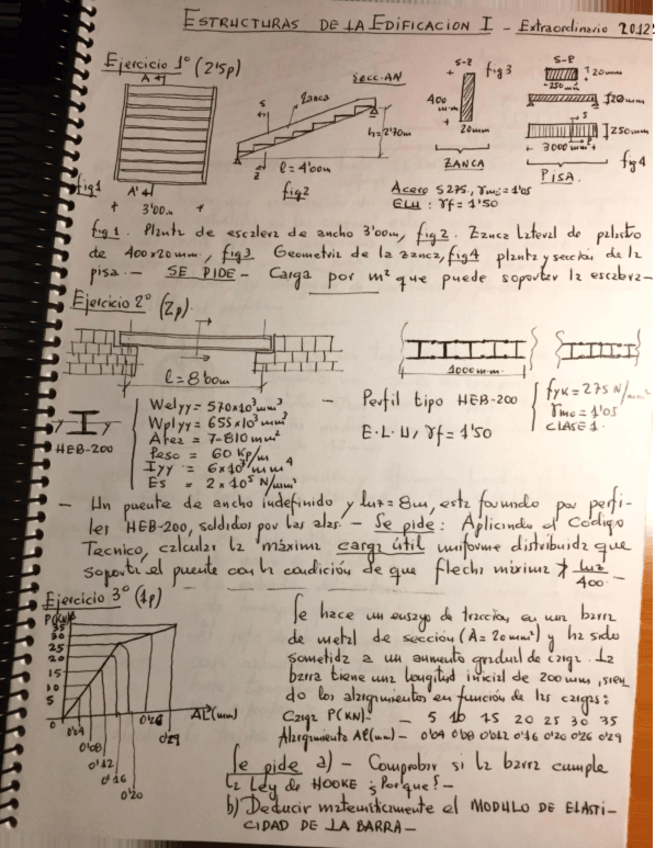 ESTRUCTURAS DE LA EDIFICACION I - Extraordinario 2012
Ejercicio 1º (2'5p)
A
A'
3'00m
fig1
Secc-AA'
Zanca
S
Z
h=2'70m
l=4'00m
fig2
S-Z
fig3
400
mm
20mm
ZANCA
S-P
20mm
250mm
20mm
250mm
3000mm
PISA.
fig4
Acero S275, γm=1'05
ELU: γf=1'50
fig1. Planta de escalera de ancho 3'00m, fig2. Zanca Lateral de palastro
de 400x20mm, fig3 Geometria de la zanca, fig4 planta y sección de la
pisa.- SE PIDE- Carga por m² que puede soportar la escalera-
Ejercicio 2º (2p).
l=8'00m
1000mm.
HEB-200
Welyy = 570x10³mm³
Wplyy = 655x10³mm³
Area = 7.810mm²
Peso = 60 Kp/m
Iyy = 6x10⁷mm⁴
Es = 2x10⁵N/mm²
- Perfil tipo HEB-200
E.L.U, γf=1'50
fyk=275 N/mm²
γmo=1'05
CLASE 1.
- Un puente de ancho indefinido y luz=8m, esta formado por perfi-
les HEB-200, soldados por las alas.- Se pide: Aplicando el Codigo
Tecnico, calcular la máxima carga útil uniforme distribuida que
soporta el puente con la condición de que flecha máxima ≯ luz/400.-
Ejercicio 3º (1p)
P(KN)
35
30
25
20
15
10
5
0
0'04
0'08
0'12
0'16
0'20
0'26
0'29
Δl(mm)
Se hace un ensayo de tracción, en una barra
de metal de sección (A=20mm²) y ha sido
sometida a un aumento gradual de carga. La
barra tiene una longitud inicial de 200mm, sien
do los alargamientos en función de las cargas:
Carga P(KN)- - 5 10 15 20 25 30 35
Alargamiento Δl(mm)- 0'04 0'08 0'012 0'16 0'20 0'26 0'29
Se pide a)- Comprobar si la barra cumple
la Ley de HOOKE ¿Porque?-
b) Deducir matematicamente el MODULO DE ELASTI-
CIDAD DE LA BARRA-